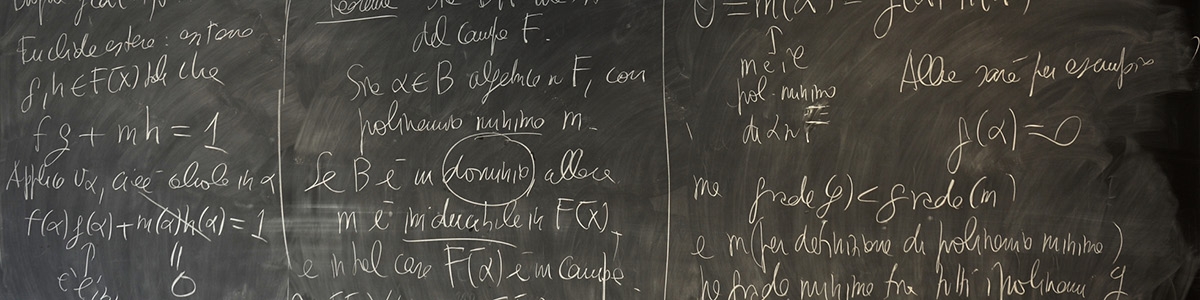 Euclide esteso: esistono
g, h ∈ F[x] tali che
fg + mh = 1
Applico vα, cioè valuto in α
f(α)g(α) + m(α)h(α) = 1
↑ =
0
Teorema Sia
del campo F.
Sia α ∈ B algebrico su F, con
polinomio minimo m.
Se B è un dominio allora
m è irriducibile in F[x],
e in tal caso F[α] è un campo.
0 = m(α) =
↑
m è il
pol. minimo
di α su F
Allora sarà per esempio
g(α) = 0
ma grado(g) < grado(m)
e m (per definizione di polinomio minimo)
ha grado minimo tra tutti i polinomi g